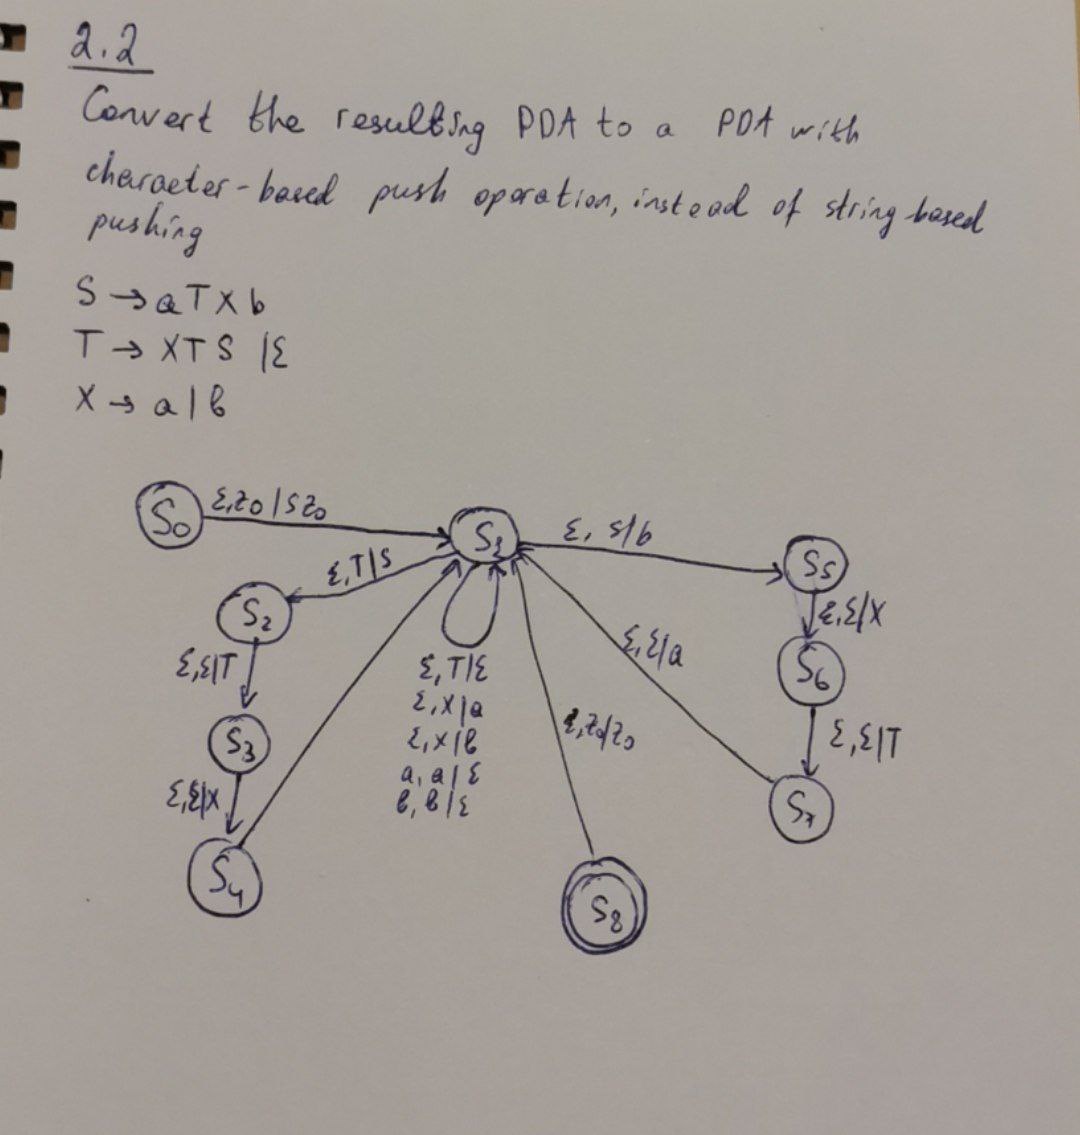 2.2
Convert the resulting PDA to a PDA with
character-based push operation, instead of string-based
pushing
S → aTXb
T → XTS |ε
X → a|b
S₀
ε,z₀|Sz₀
S₁
ε, S|b
S₅
ε,T|S
S₂
ε,ε|X
ε,ε|T
ε,T|ε
ε,ε|a
S₆
ε,X|a
S₃
ε,X|b
ε,z₀|z₀
ε,ε|T
a, a|ε
ε,ε|X
b, b|ε
S₇
S₄
S₈